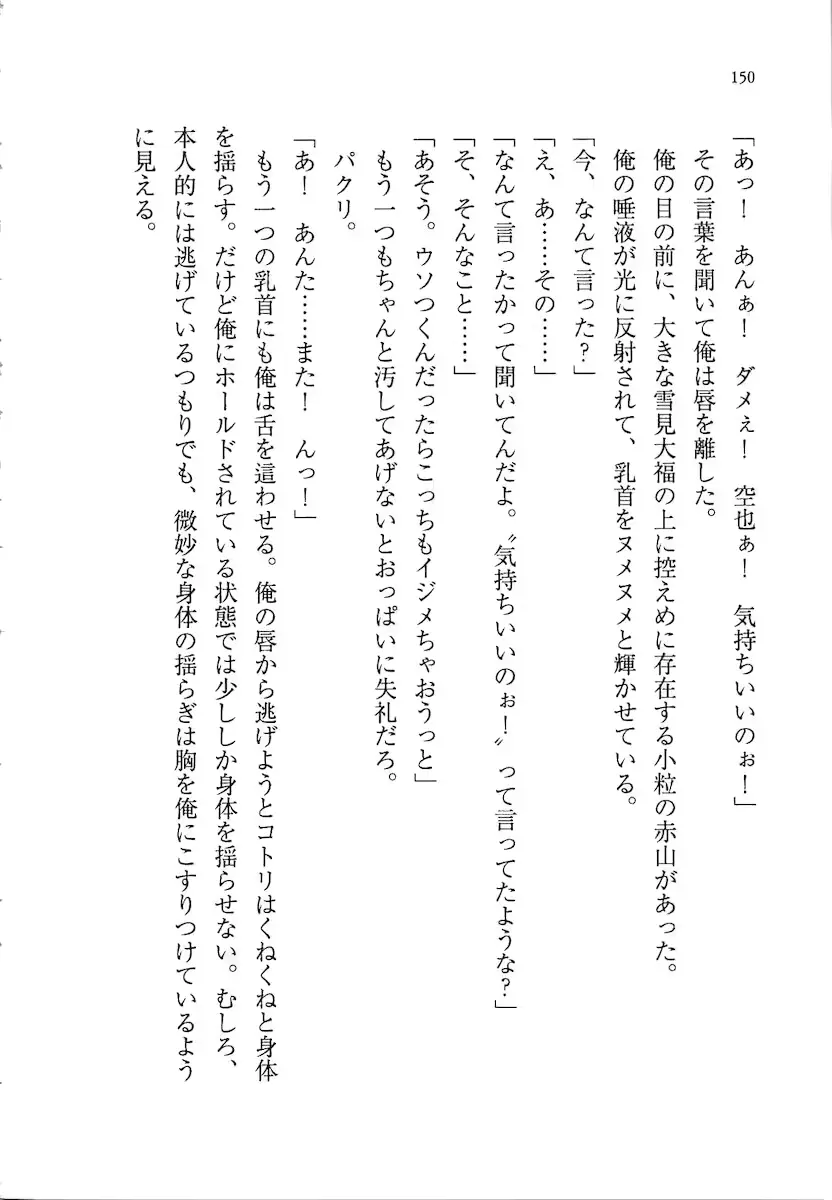 150
「あっ！　あんぁ！　ダメぇ！　空也ぁ！　気持ちいいのぉ！」
その言葉を聞いて俺は唇を離した。
俺の目の前に、大きな雪見大福の上に控えめに存在する小粒の赤山があった。
俺の唾液が光に反射されて、乳首をヌメヌメと輝かせている。
「今、なんて言った？」
「え、あ……その……」
「なんて言ったかって聞いてんだよ。〝気持ちいいのぉ！〟って言ってたような？」
「そ、そんなこと……」
「あそう。ウソつくんだったらこっちもイジメちゃおうっと」
もう一つもちゃんと汚してあげないとおっぱいに失礼だろ。
パクリ。
「あ！　あんた……また！　んっ！」
もう一つの乳首にも俺は舌を這わせる。俺の唇から逃げようとコトリはくねくねと身体
を揺らす。だけど俺にホールドされている状態では少ししか身体を揺らせない。むしろ、
本人的には逃げているつもりでも、微妙な身体の揺らぎは胸を俺にこすりつけているよう
に見える。